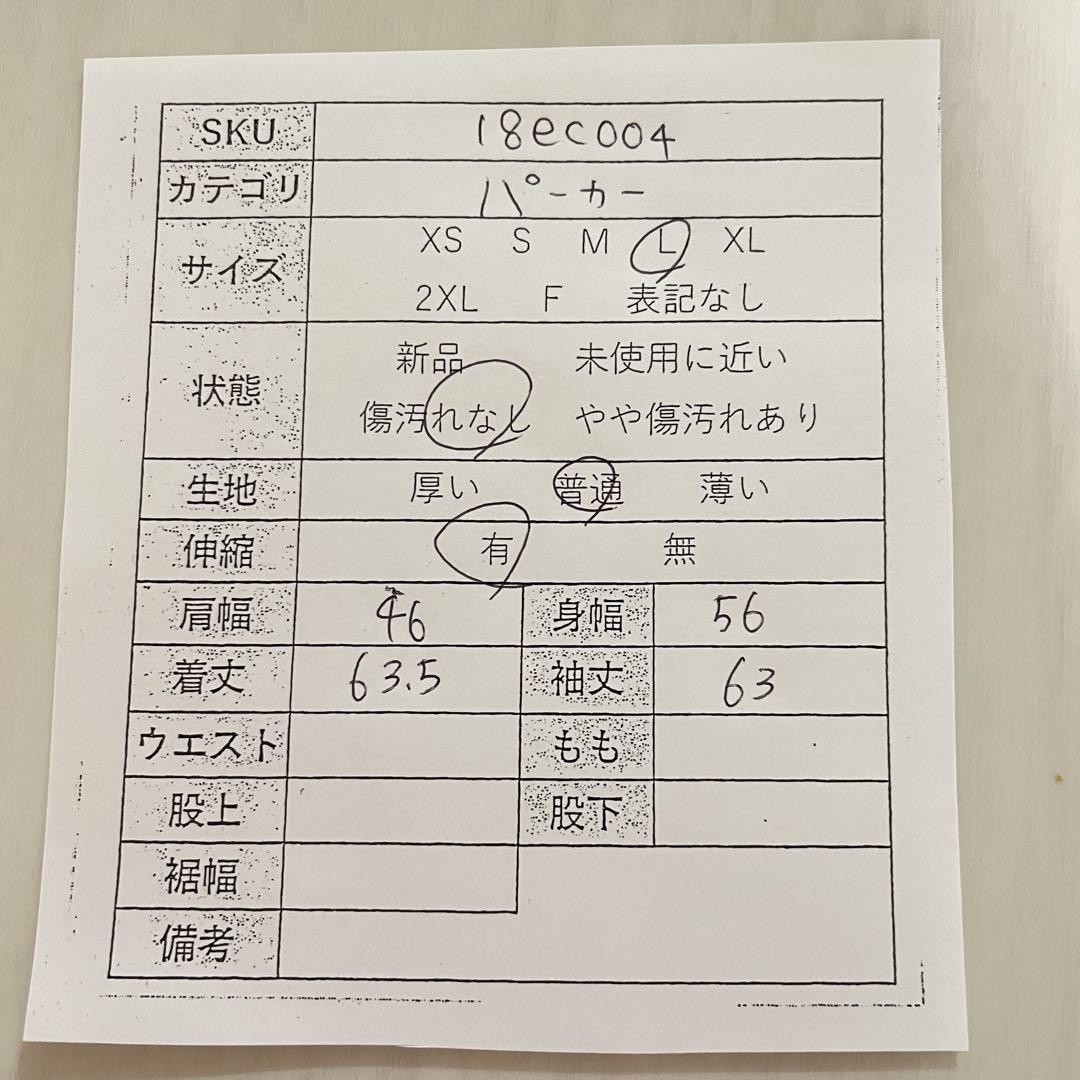 SKU 18ec004
カテゴリ パーカー
サイズ XS S M L XL
2XL F 表記なし
状態 新品 未使用に近い
傷汚れなし やや傷汚れあり
生地 厚い 普通 薄い
伸縮 有 無
肩幅 46 身幅 56
着丈 63.5 袖丈 63
ウエスト もも
股上 股下
裾幅
備考